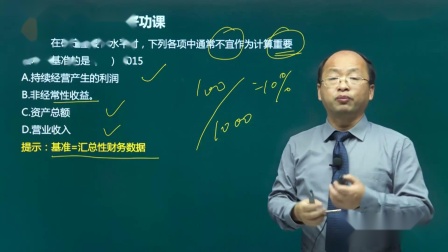 功课
在 水 ，下列各项中通常不宜作为计算重要
基准的是 ）015
A.持续经营产生的利润
B.非经常性收益。
C.资产总额
D.营业收入
提示：基准=汇总性财务数据
100/1000=10%